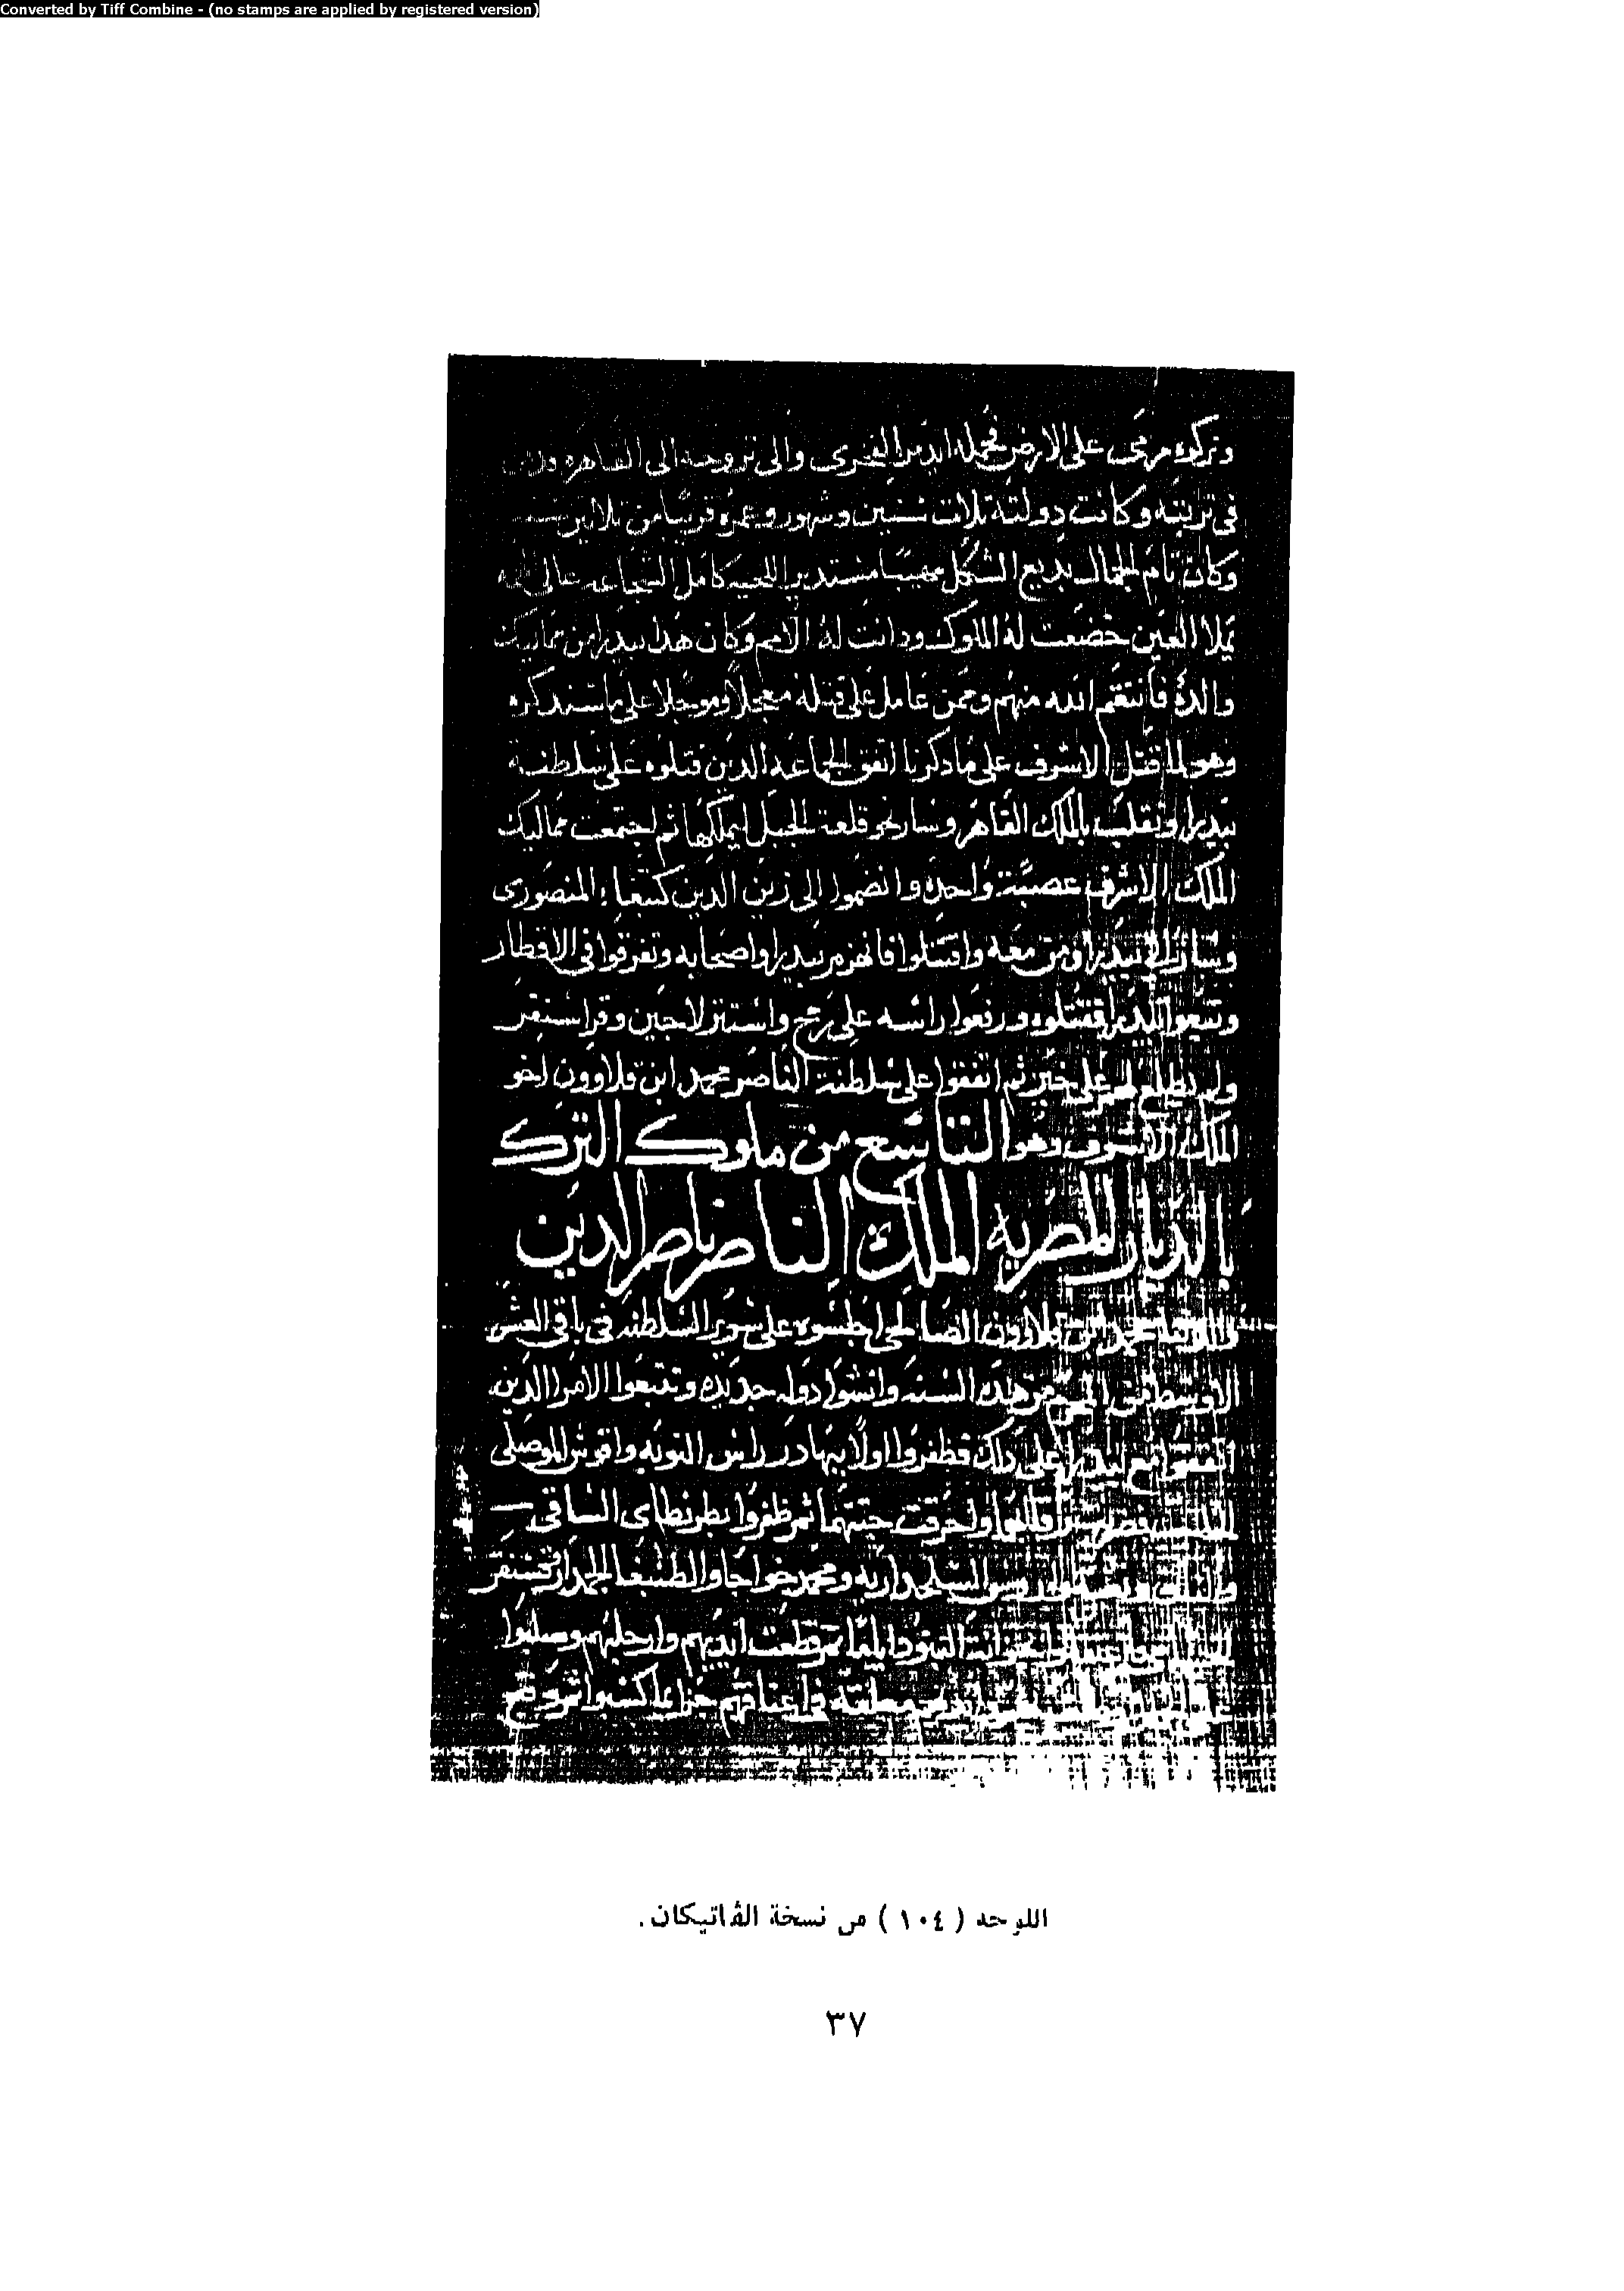 Converted by Tiff Combine - (no stamps are applied by registered version)
وتركوه مرمى على الارض فحمله ايدمر الفخرى والى تروجه الى القاهره ودفن
فى تربته وكانت دولته ثلاث سنين وشهور وعمره قريبا من ثلاثين سنه
وكان تام الجمال بديع الشكل مهيبا مستدير اللحيه كامل الشجاعه عالى الهمه
يملا العين خضعت له الملوك ودانت له الامم وكان هذا بيدرا من مماليك
والده فانتقم الله منهم وممن عامل على قتله معجلا وموجلا على ما سنذكره
وهو لما قتل الاشرف على ما ذكرنا اتفق الجماعة الذين قتلوه على سلطنة
بيدرا وتقلب بالملك القاهر وسار نحو قلعة الجبل ليملكها ثم اجتمعت مماليك
الملك الاشرف عصبة واحدة وانضموا الى زين الدين كتبغا المنصورى
وساروا الى بيدرا ومن معه واقتتلوا فانهزم بيدرا واصحابه وتفرقوا فى الاقطار
وتتبعوا بيدرا فقتلوه ورفعوا راسه على رمح واستتر لاجين وقراسنقر
ولم يطلع لهم على خبر ثم اتفقوا على سلطنة الناصر محمد ابن قلاوون اخو
الملك الاشرف وهو التاسع من ملوك الترك
بالديار المصريه الملك الناصر ناصر الدين
محمد بن قلاوون الصالحى اجلسوه على سرير السلطنه فى باقى العشر
الاوسط من المحرم من هذه السنة وانشوا دوله جديده وتتبعوا الامرا الذين
مع بيدرا على ذلك فظفروا اولا ببهادر راس النوبه واقوش الموصلى
واحرقت جثتهما ثم ظفروا بطرنطاى الساقى
السلحداريه ومحمد خواجا والطنبغا الجمدار واقسنقر
فقطعت ايديهم وارجلهم وصلبوا
اعناقهم جزا بما كسبوا ثم وقع
اللوحة (١٠٤) من نسخة الڤاتيكان.
٣٧